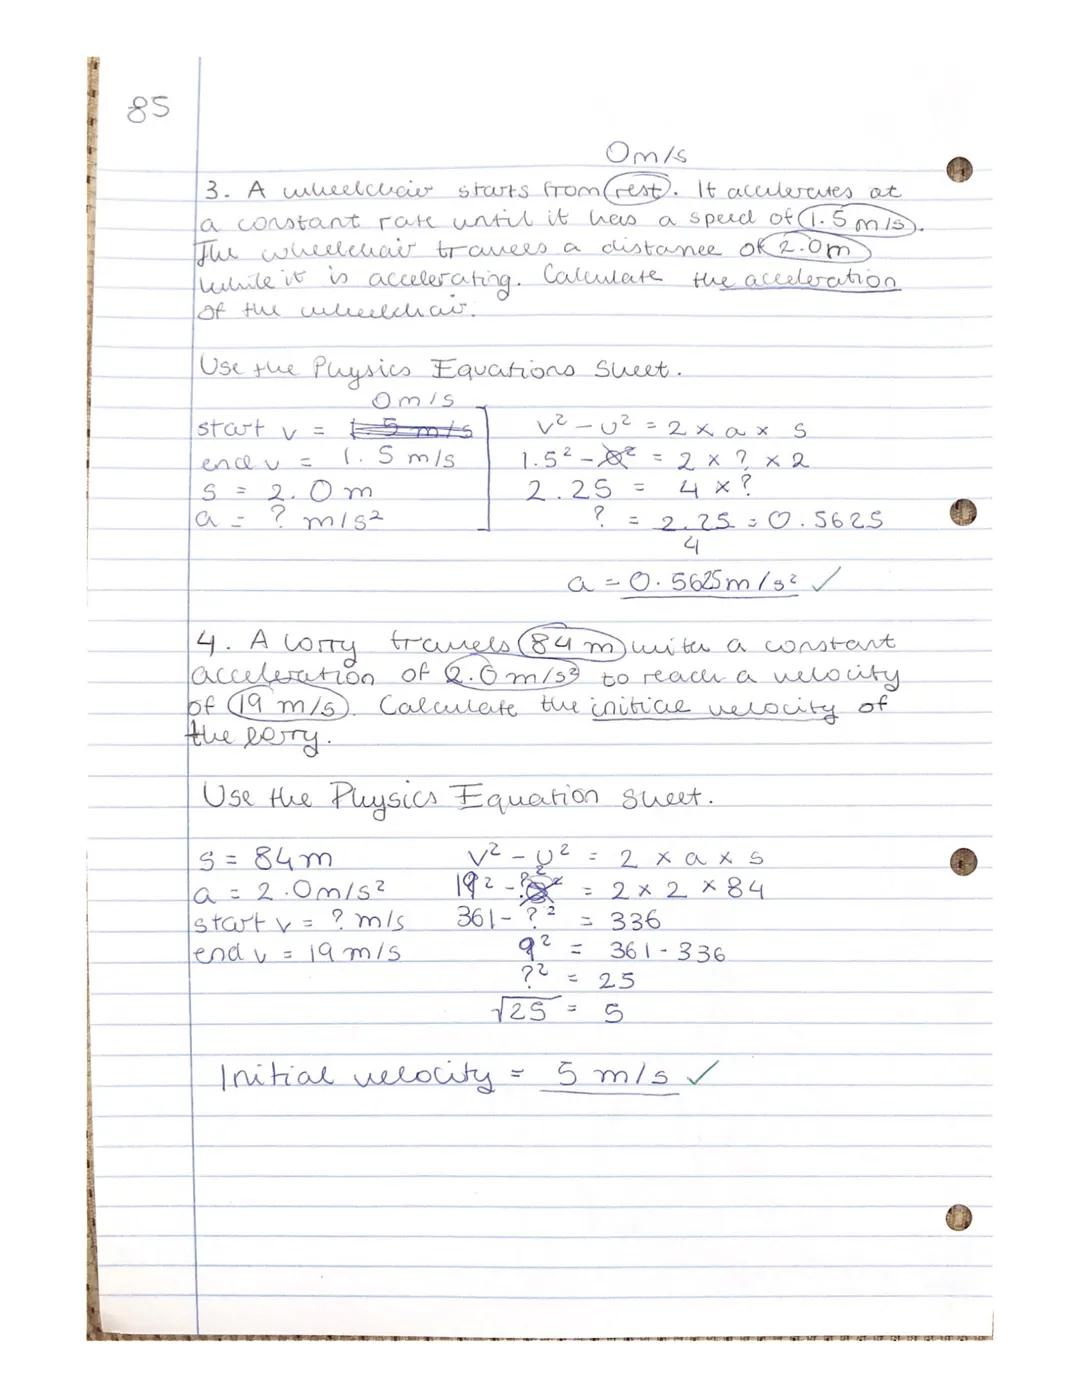 85
0m/s
3. A wheelchair starts from rest. It accelerates at
a constant rate until it has a speed of 1.5 m/s.
The wheelchair travels a distance of 2.0m
while it is accelerating. Calculate the acceleration
of the wheelchair.
Use the Physics Equations Sheet.
0m/s
start v =
end v = 1.5 m/s
s = 2.0 m
a = ? m/s²
v² - u² = 2 × a × s
1.5² - 0² = 2 × ? × 2
2.25 = 4 × ?
? = 2.25 = 0.5625
4
a = 0.5625m/s² ✓
4. A lorry travels 84 m with a constant
acceleration of 2.0m/s² to reach a velocity
of 19 m/s. Calculate the initial velocity of
the lorry.
Use the Physics Equation sheet.
s = 84m
a = 2.0m/s²
start v = ? m/s
end v = 19 m/s
v² - u² = 2 × a × s
19² - ?² = 2 × 2 × 84
361 - ?² = 336
?² = 361 - 336
?² = 25
√25 = 5
Initial velocity = 5 m/s ✓